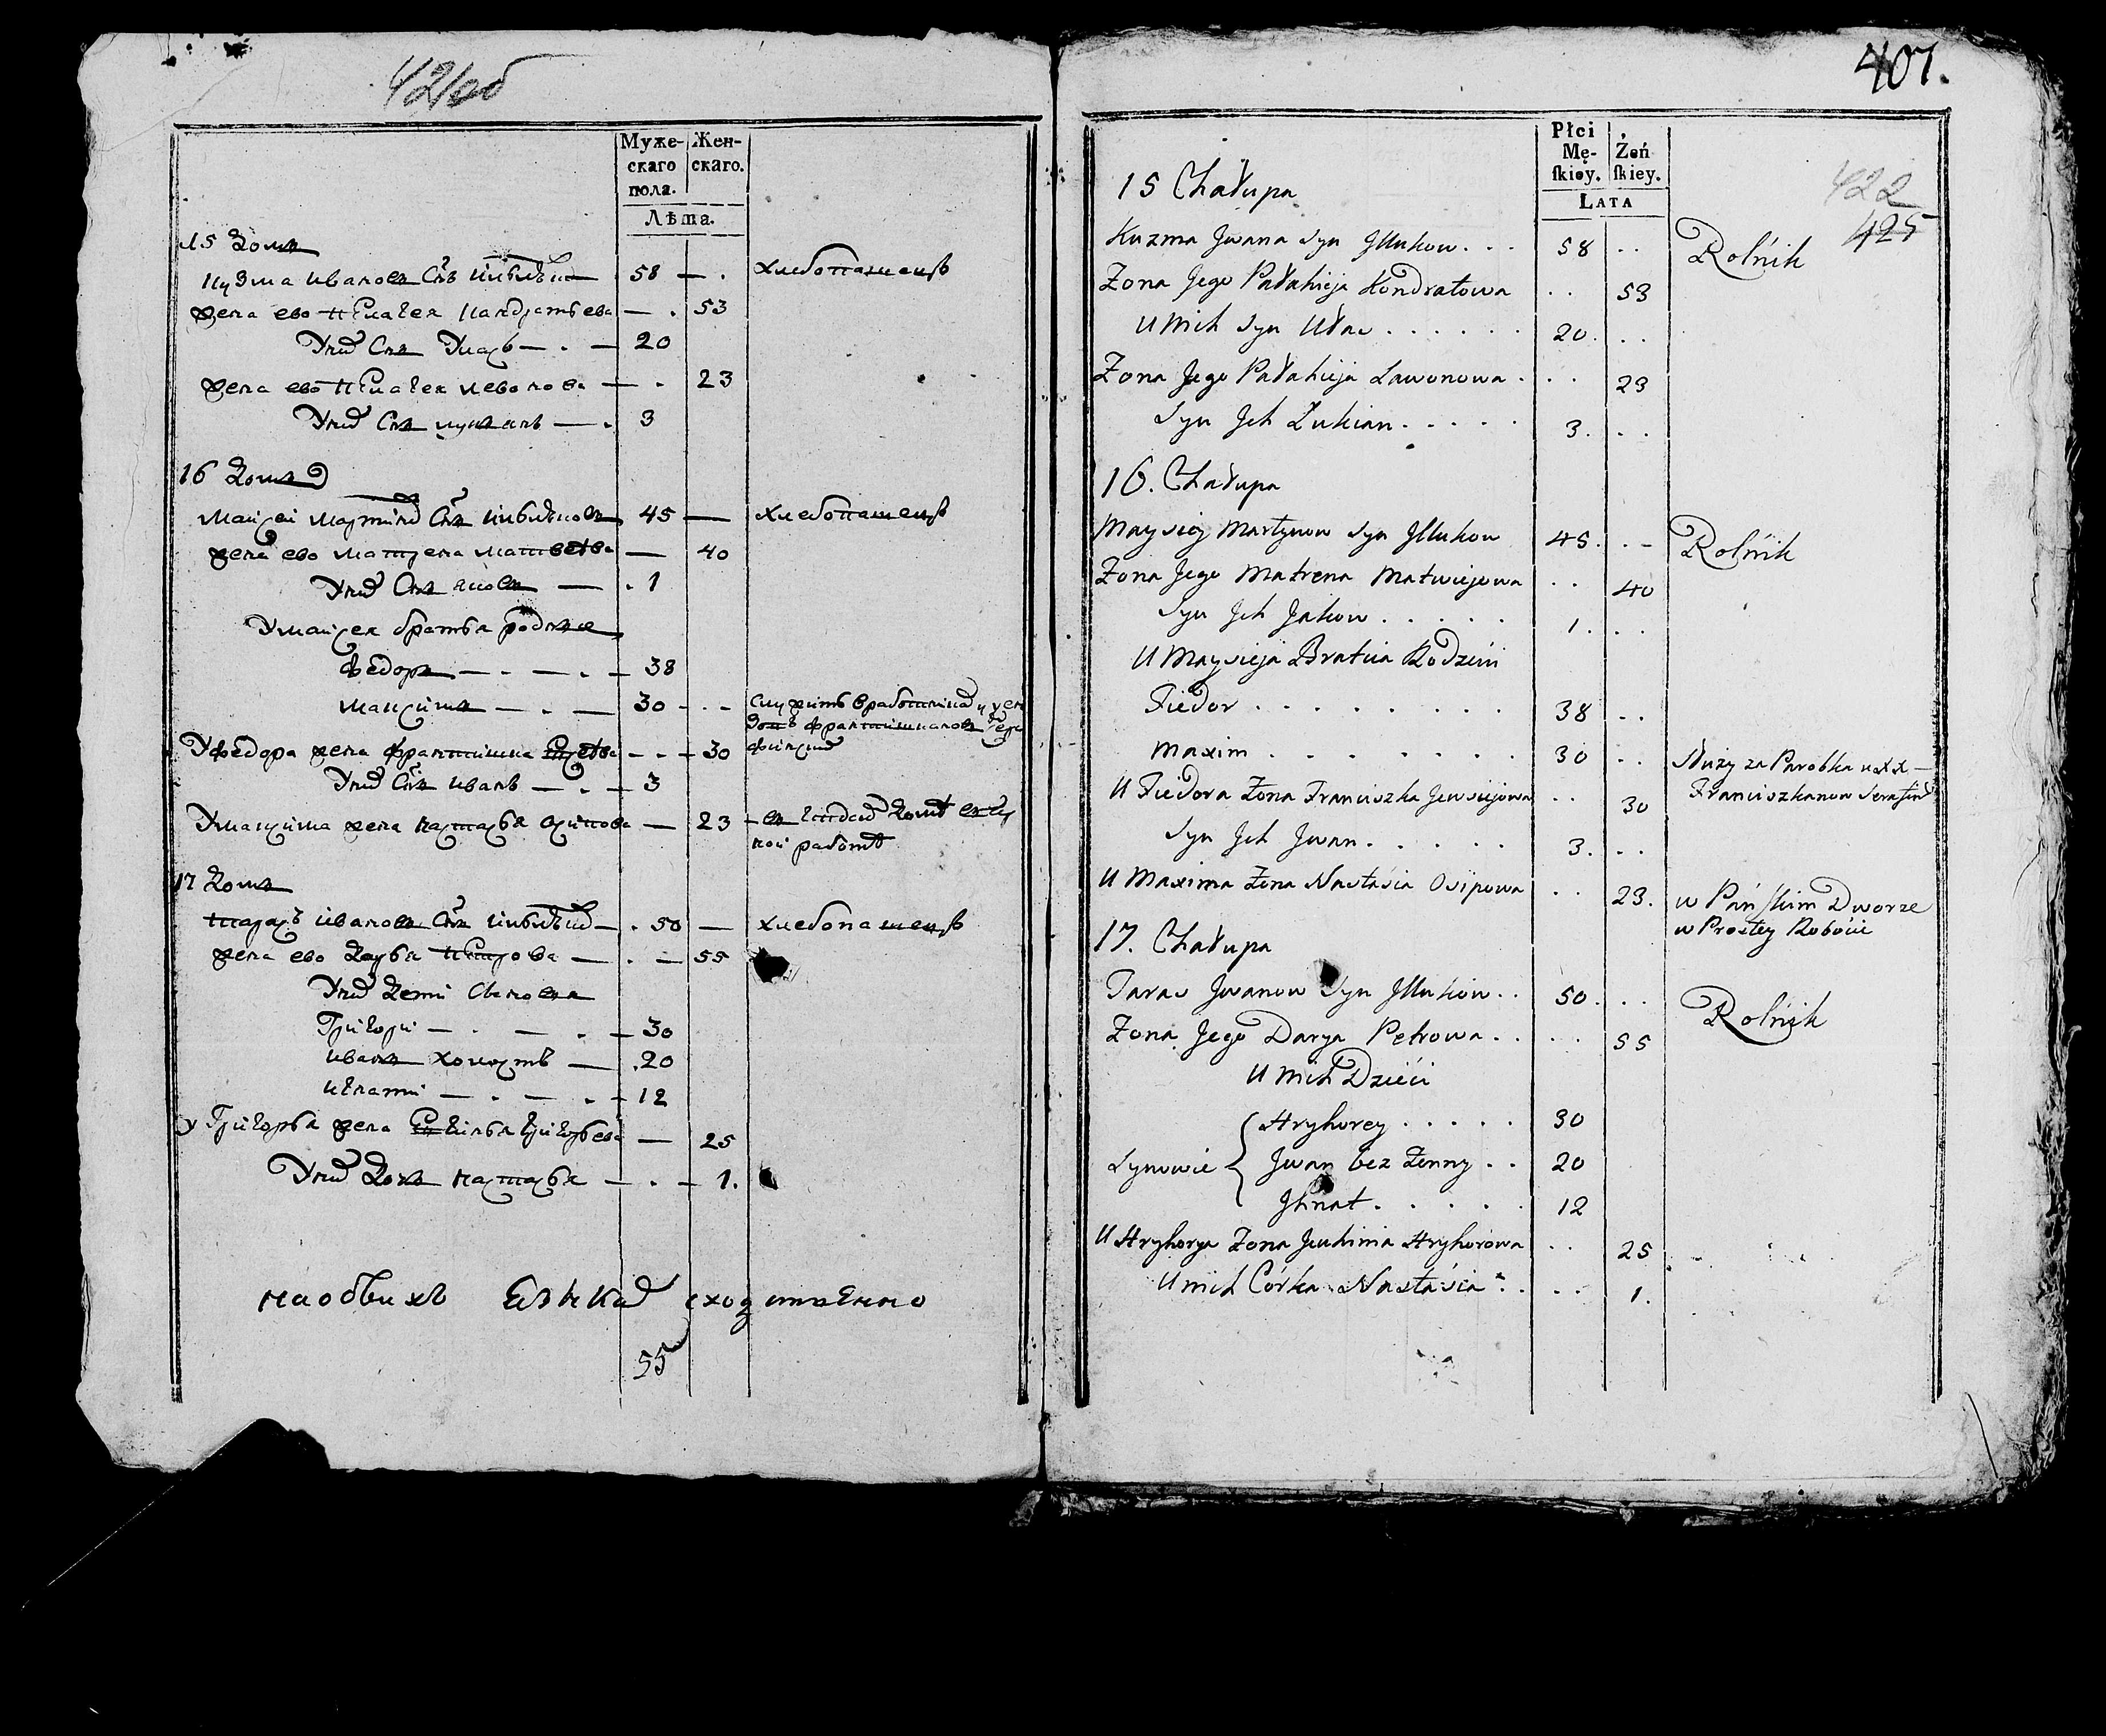 421об
Муже-
скаго
пола.
Жен-
скаго.
Лѣта.
15 Домъ
Кузма Ивановъ Снъ 58 — . хлебопашецъ
жена ево Пелагея Кандратьева — . 53
У них Снъ Уласъ — . — 20
жена ево Пелагея Левонова — . 23
У них Снъ Лукианъ — . 3
16 Домъ
Майсей Мартинов Снъ 45 — хлебопашецъ
жена ево Матрена Матвеева — 40
У них Снъ Яковъ — . 1
У Майсея братья родныя
Федоръ — . — . — 38
Максимъ — . — 30 - . - служитъ в работниках у
У Федора жена Францишка — . - 30
У них Снъ Иванъ — . — 3
У Максима жена Настасья Осипова — 23
ной работе
17 Домъ
Тарасъ Ивановъ Снъ — . 50 — хлебопашецъ
жена ево Дарья Петрова — . — 55
У них Дети Сыновья
Григори — . — . — 30
Иванъ холостъ — . 20
Игнати — . — . — 12
у Григорья жена Григорьева — 25
У них Дочь Настасья — . — 1.
на обеихъ языках сходственно
55
407.
422
425
Płci
Mę-
ſkiey.
Żeń
ſkiey.
LATA
15 Chałupa
Kuzma Jwana Syn Jllukow . . . 58 . . Rolnik
Zona Jego Pałahieja Kondratowa . . 53
U Nich Syn Ułas . . . . . . 20 . . .
Zona Jego Pałahieja Lawonowa . . . 23
Syn Jch Łukian . . . . . 3. . .
16. Chałupa
Maysiey Martynow Syn Jllukow 45. . - Rolnik
Zona Jego Matrena Matwiejowa . . 40
Syn Jch Jakow . . . . . 1. . .
U Maysieja Bratia Rodzeni
Fiedor . . . . . . . . 38 . .
Maxim . . . . . . . 30 . . Służy za Parobka u XX —
Franciszkanow Serafin
U Fiedora Zona Franciszka Jewsiejowa . . 30
Syn Jch Jwan . . . . . 3. . .
U Maxima Zona Nastasia Osipowa . . 23. w Pańſkim Dworze
w Prostey Robocie
17. Chałupa
Taras Jwanow Syn Jllukow . . 50. . . Rolnik
Zona Jego Darya Petrowa . . . . 55
U Nich Dzieci
Synowie { Hryhorey . . . . . 30
Jwan bez Zenny . . 20
Jhnat . . . . . 12
U Hryhorya Zona Jeuhimia Hryhorowa . . 25
U nich Córka Nastasia . . . . 1.